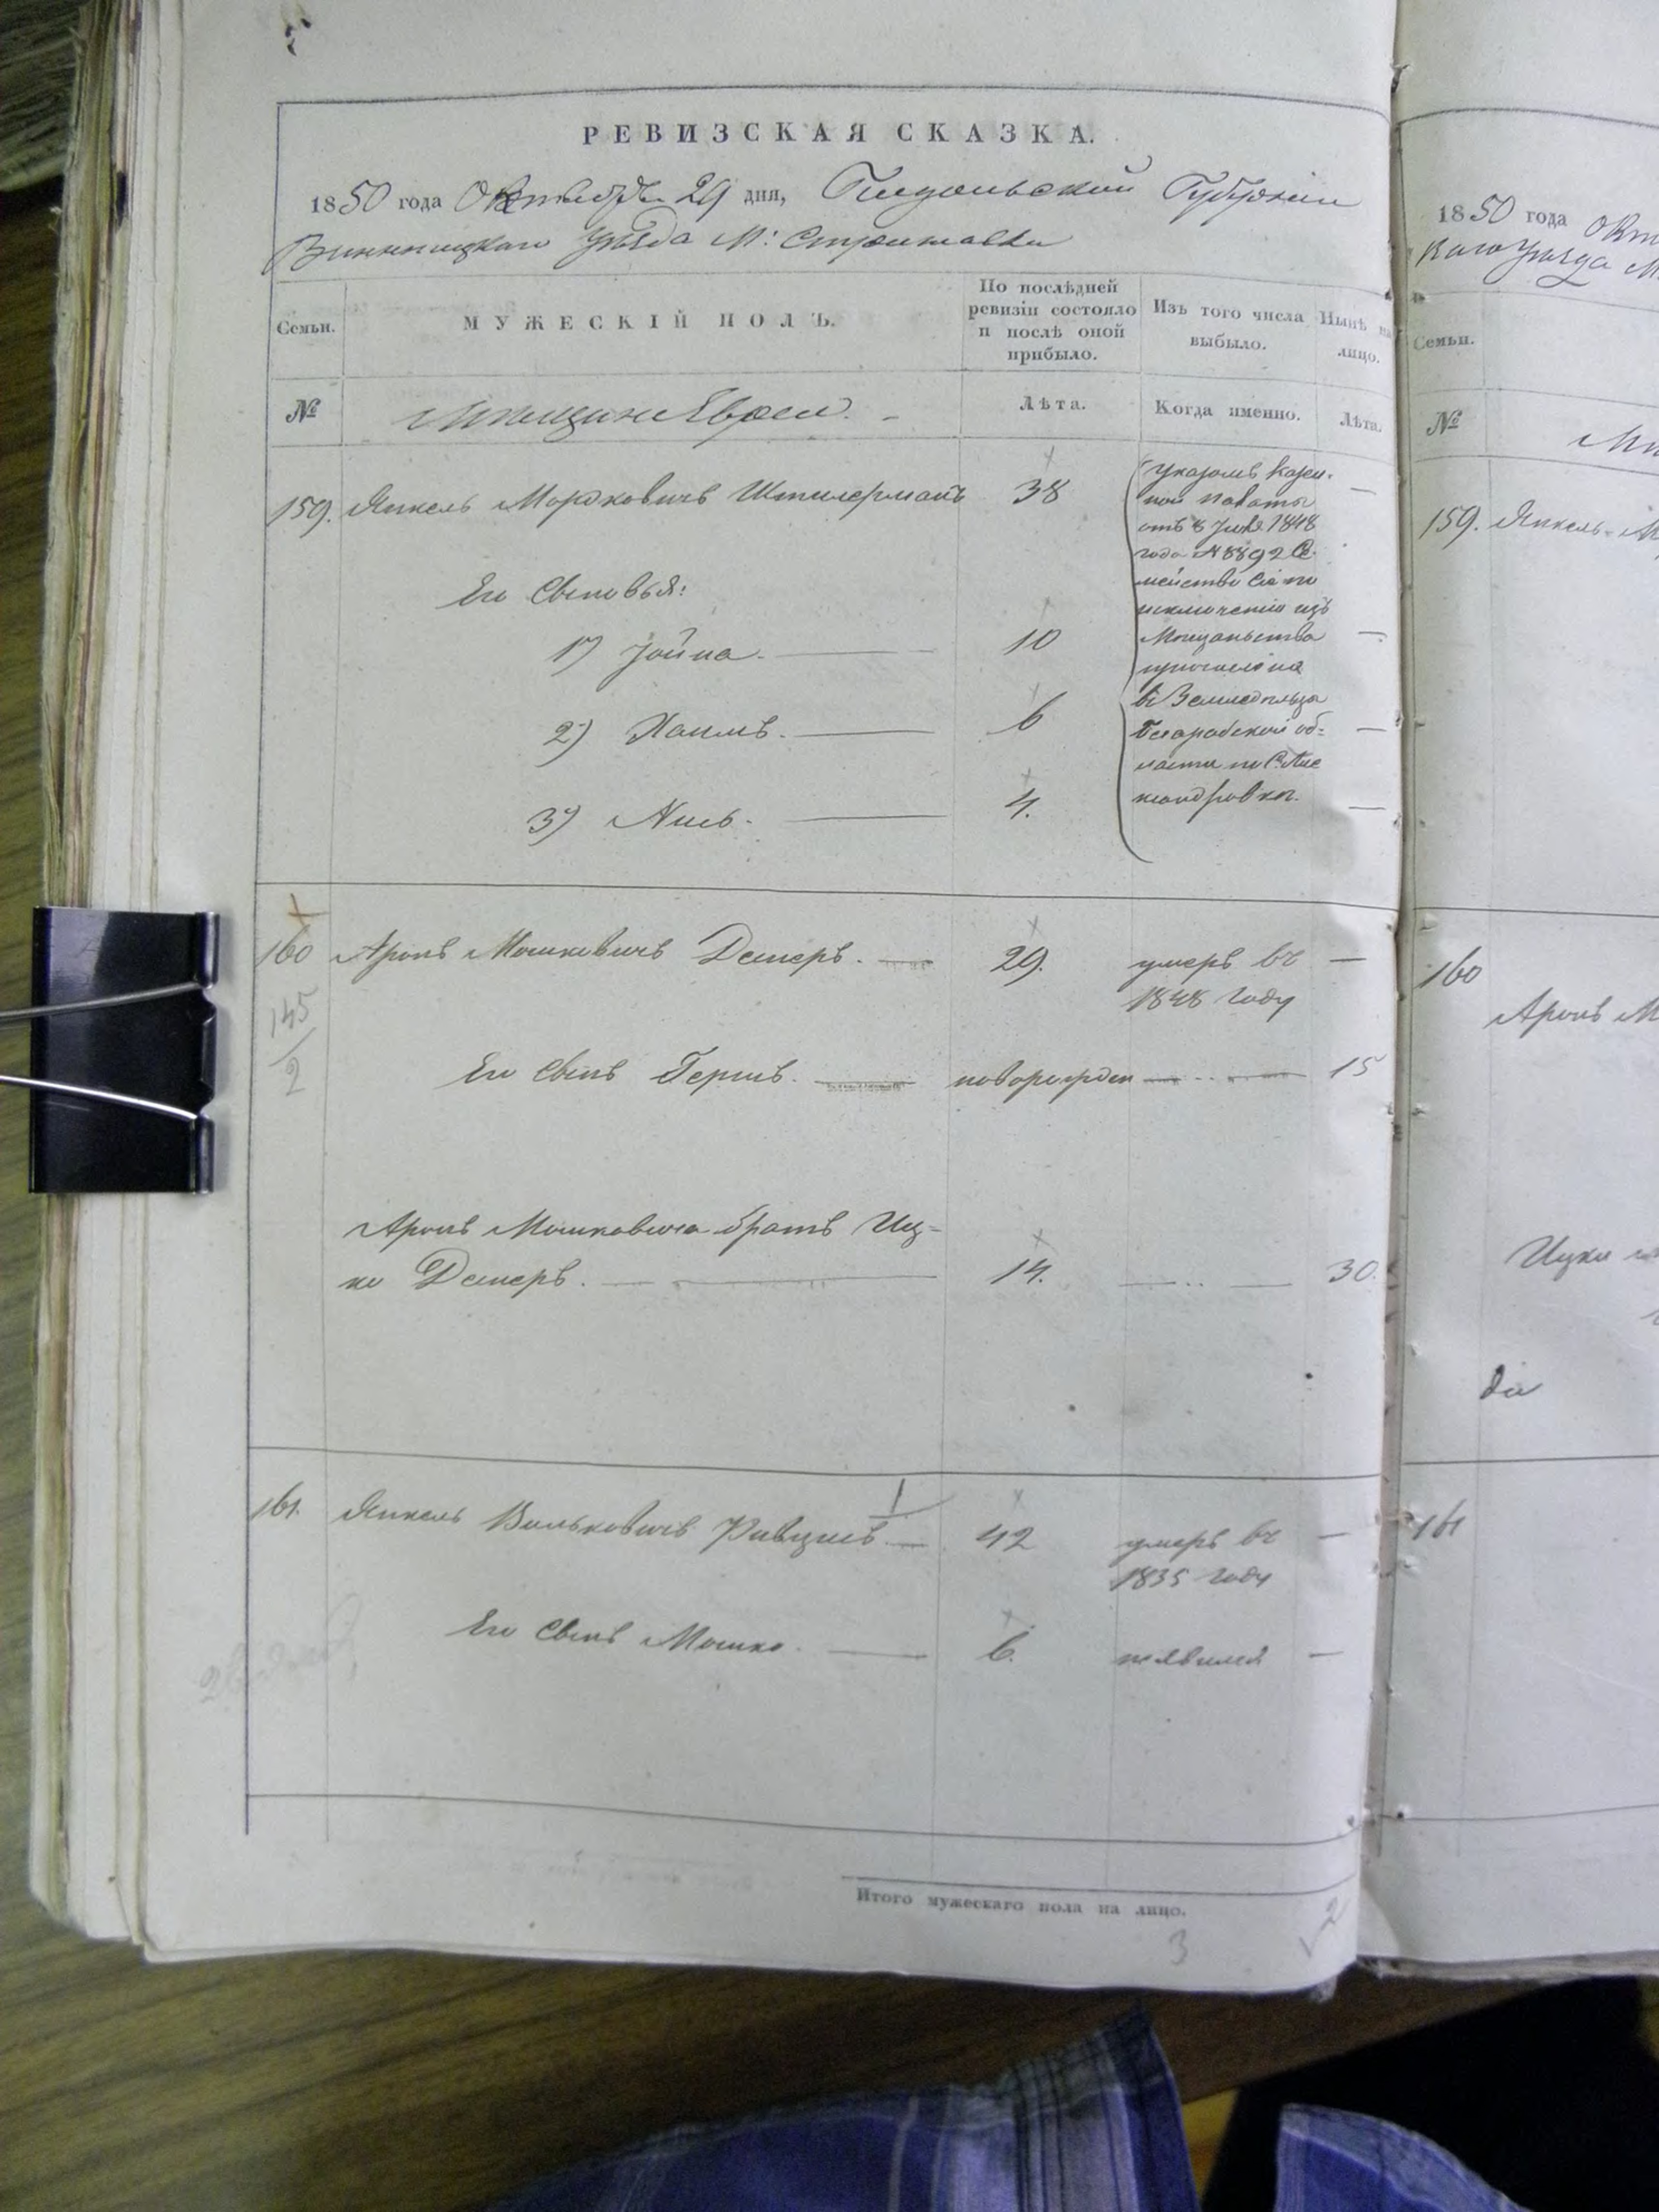 РЕВИЗСКАЯ СКАЗКА.
1850 года Октября 29 дня, Подольской Губернии
Винницкаго уѣзда М: Стрижавки
Семьи.
МУЖЕСКІЙ ПОЛЪ.
По послѣдней ревизіи состояло и послѣ оной прибыло.
Изъ того числа выбыло.
Нынѣ на лицо.
№
Мѣщане Евреи.
Лѣта.
Когда именно.
Лѣта.
159. Янкель Мордковичъ Шпилерманъ 38 —
Указомъ Казен-
ной палаты
отъ 8 Юля 1848
года №8892 Се
мейство сіе по
исключеніи изъ
Мещанства
причислено
въ Земледѣльцы
Бесарабской об-
ласти
Его Сыновья:
1) Іойна. — 10 —
2) Хаимъ. — 6 —
3) — 4. —
160 Аронъ Мошковичъ Демеръ. — 29. умеръ въ —
1848 году
145
2
Его Сынъ Гершъ. — новорожден — 15
Аронъ Мошковича братъ Иц-
ко Демеръ. — 14. — 30.
161. Янкель Вольковичъ — 42 умеръ въ —
1835 году
Его Сынъ Мошко. — 6. —
Итого мужескаго пола на лицо.
3 2
1850 года Окт
каго уѣзда М
Семьи.
№
Мѣ
159. Янкель М
160
Аронъ М
Ицки
161